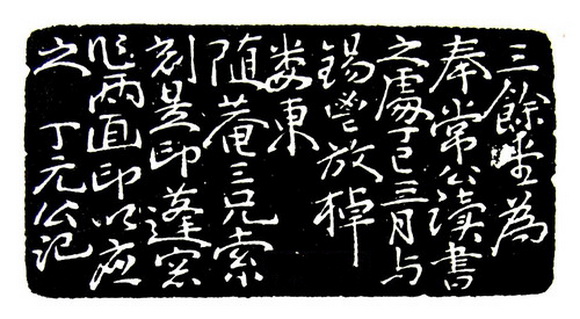 三餘堂為
奉常公讀書
之處丁巳三月与
錫鬯放棹
婁東
随菴三兄索
刻是印蓬窓
作両面印以應
之丁元公记